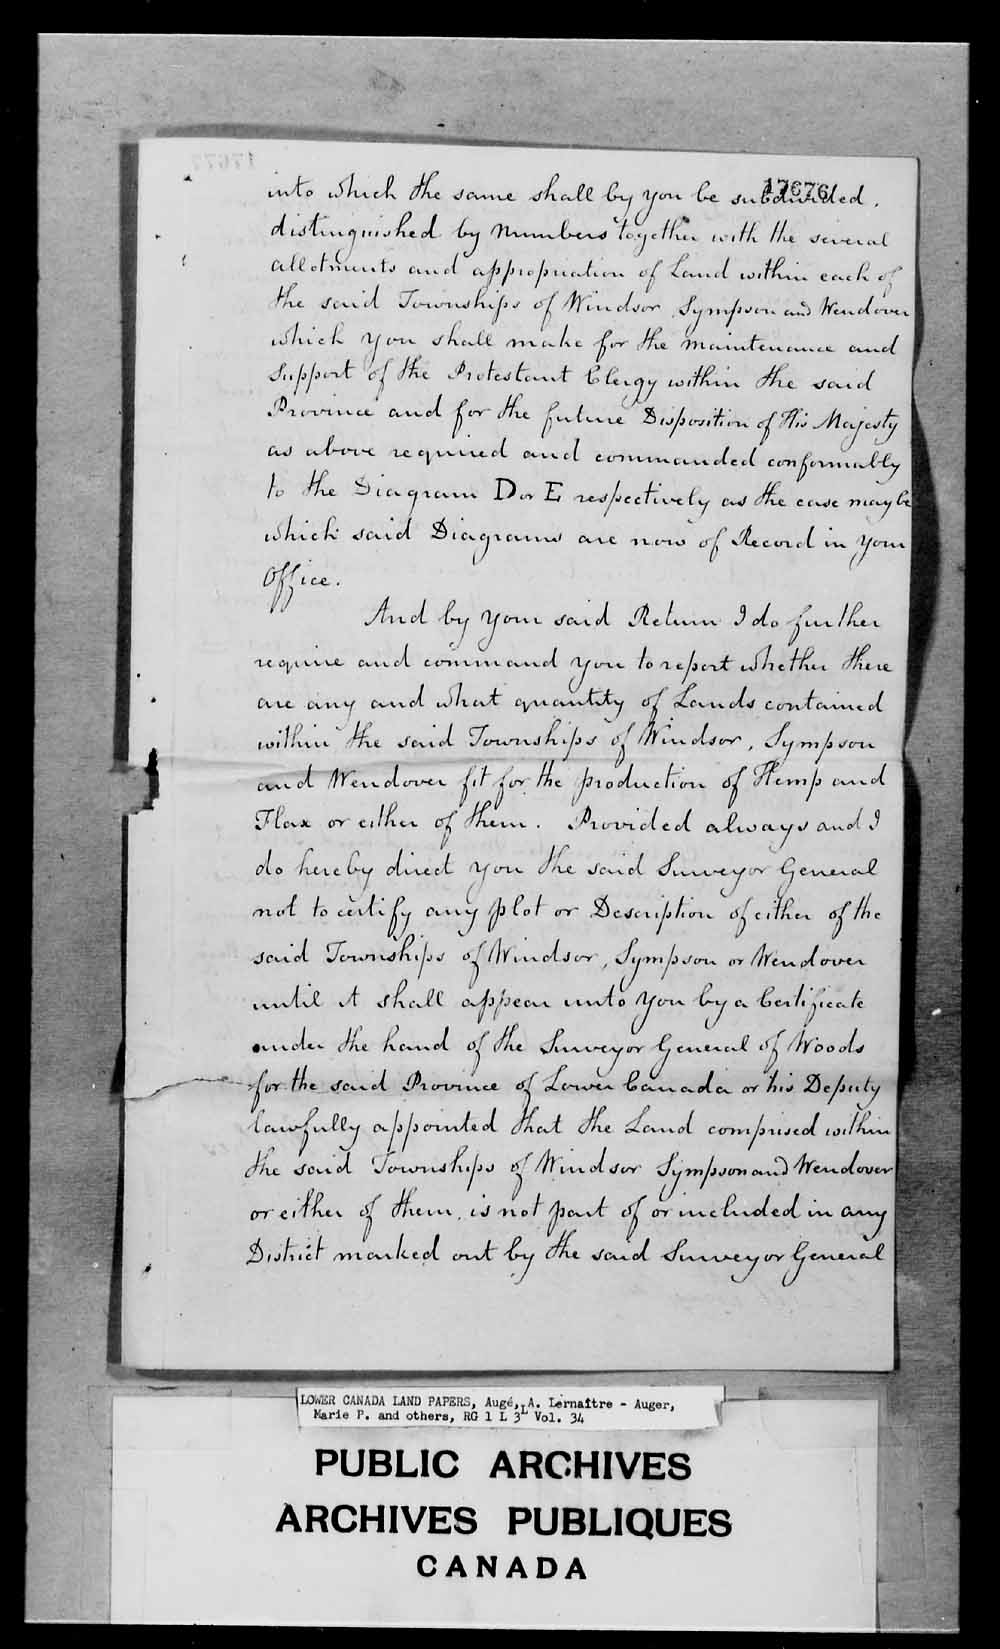 17677
17676
into which the same shall by you be subdivided,
distinguished by Numbers together with the several
allotments and appropriation of Land within each of
the said Townships of Windsor, Sympson and Wendover
which you shall make for the maintenance and
Support of the Protestant Clergy within the said
Province and for the future Disposition of His Majesty
as above required and commanded conformably
to the Diagram D or E respectively as the case may be
which said Diagrams are now of Record in your
Office.
And by your said Return I do further
require and command you to report whether there
are any and what quantity of Lands contained
within the said Townships of Windsor, Sympson
and Wendover fit for the production of Hemp and
Flax or either of them. Provided always and I
do hereby direct you the said Surveyor General
not to certify any plot or Description of either of the
said Townships of Windsor, Sympson or Wendover
until it shall appear unto you by a Certificate
under the hand of the Surveyor General of Woods
for the said Province of Lower Canada or his Deputy
lawfully appointed that the Land comprised within
the said Townships of Windsor Sympson and Wendover
or either of them, is not part of or included in any
District marked out by the said Surveyor General
LOWER CANADA LAND PAPERS, Augé, A. Lernaître - Auger,
Marie P. and others, RG 1 L 3L Vol. 34
PUBLIC ARCHIVES
ARCHIVES PUBLIQUES
CANADA